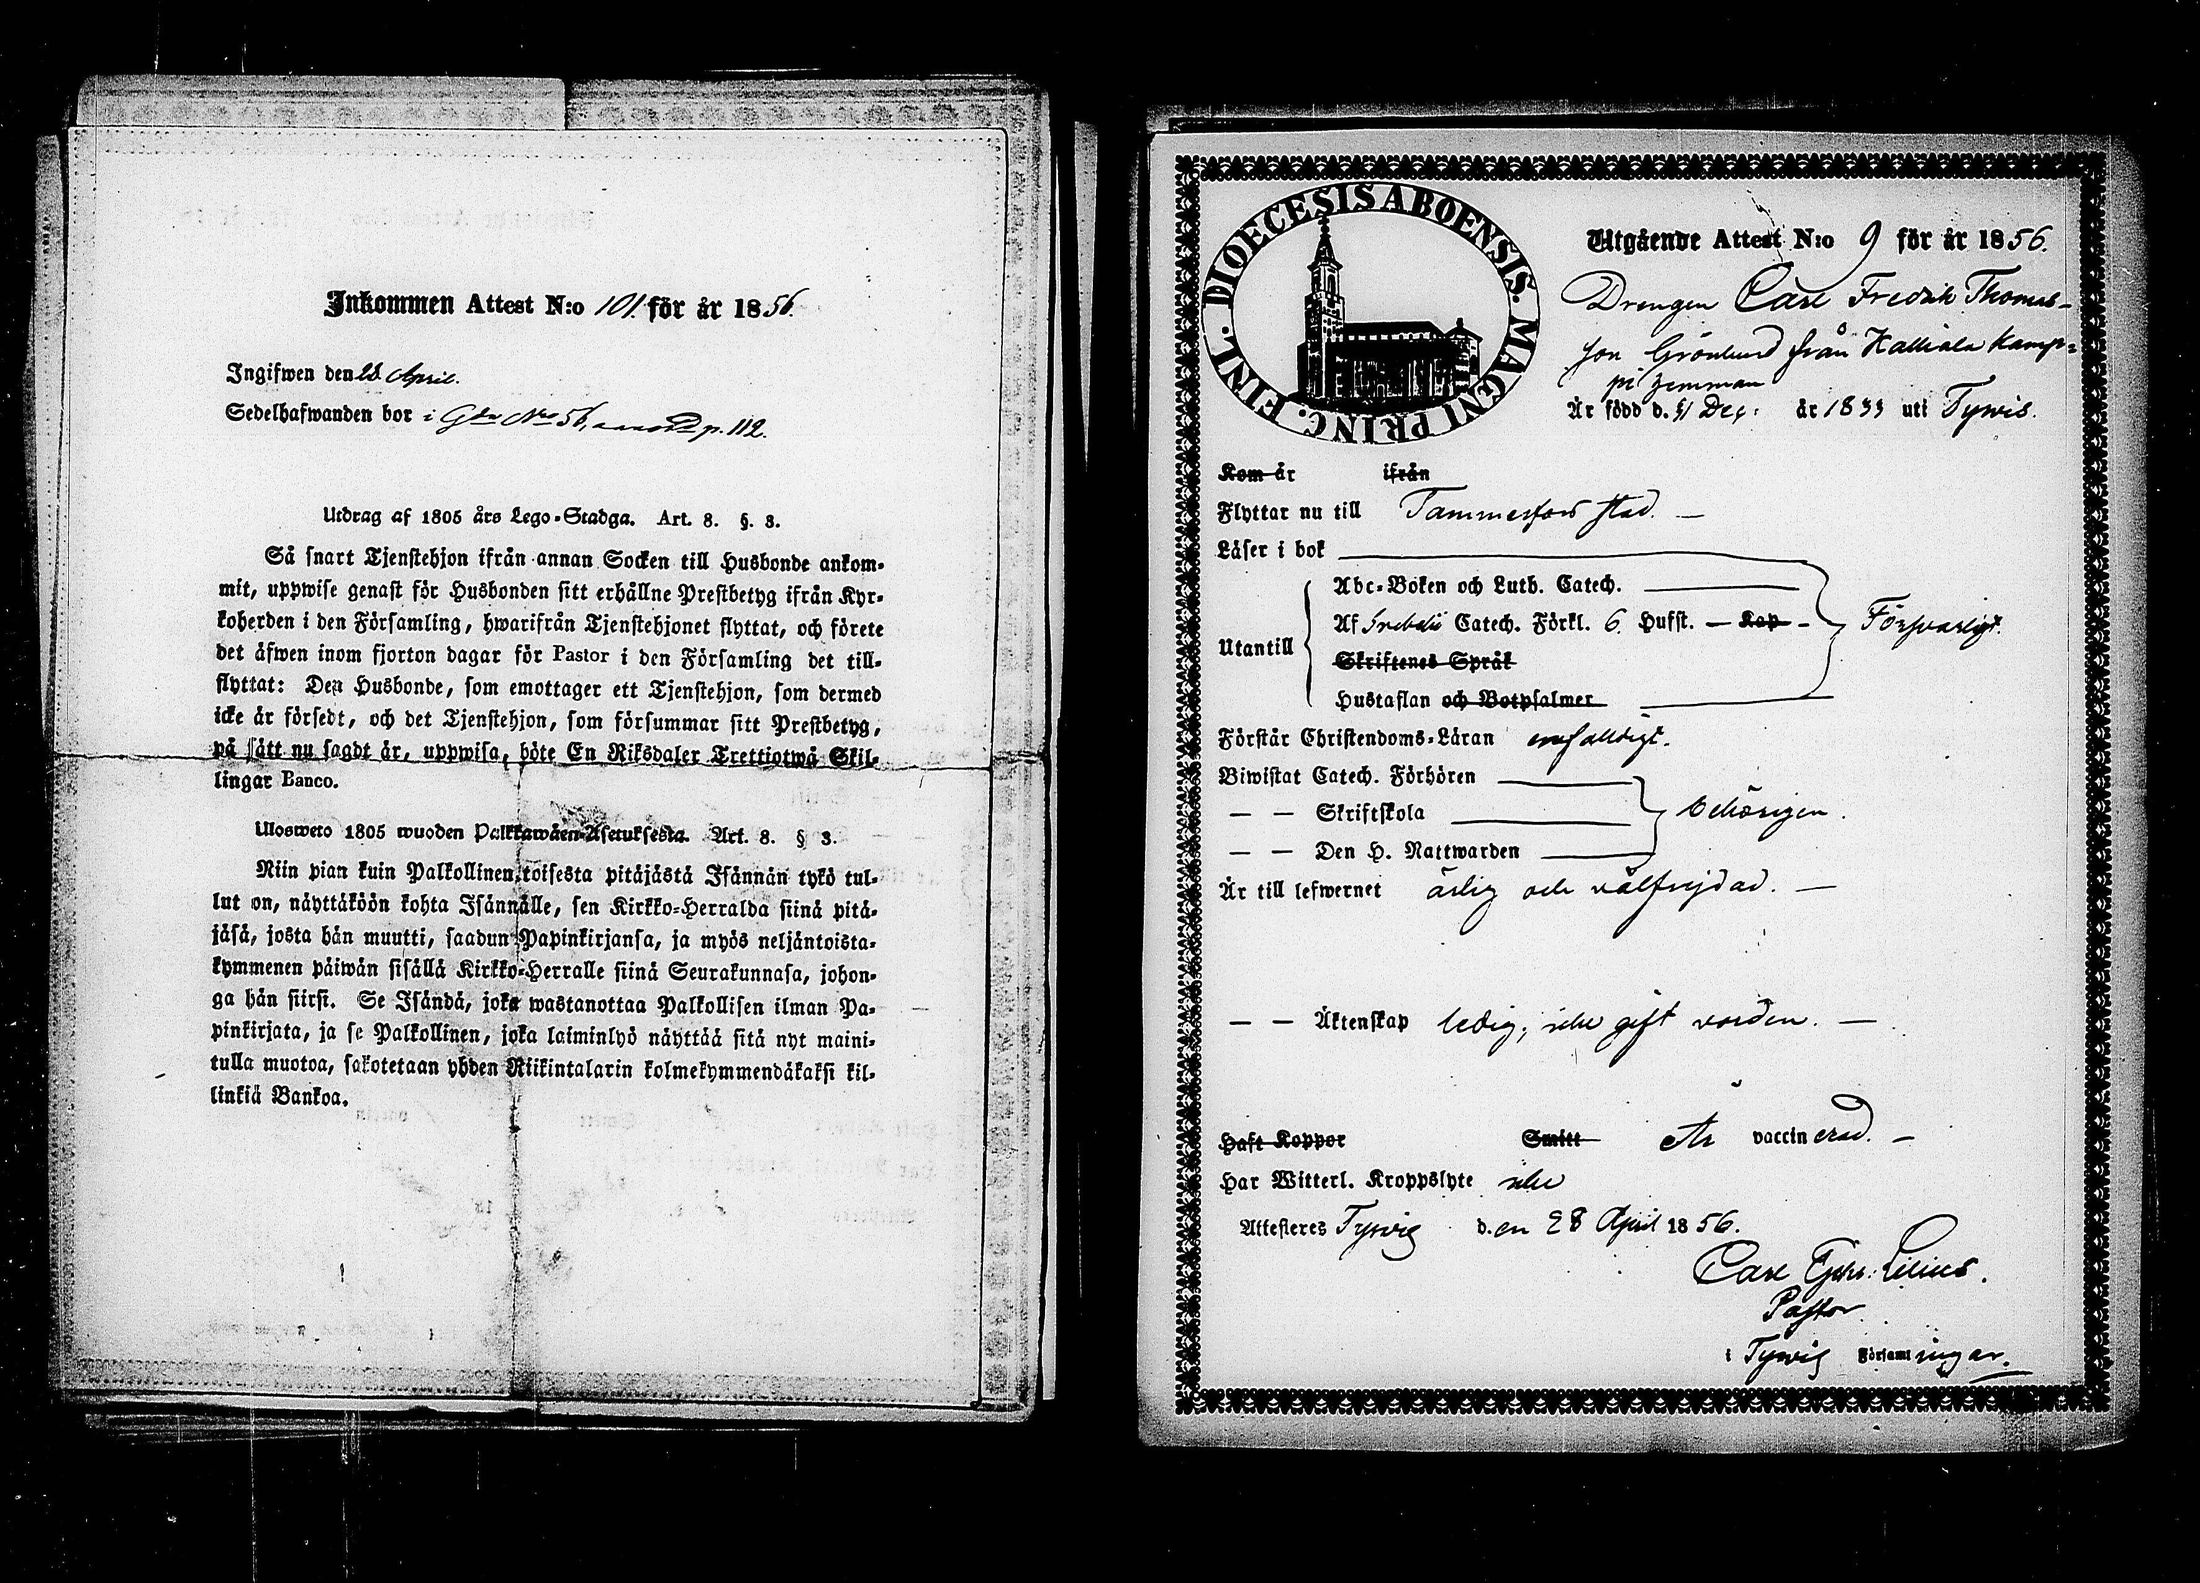 Inkommen Attest N:o 101. för år 1856.
Ingifwen den 28. April.
Sedelhafwanden bor i Gdn No 56, p. 112.
Utdrag af 1805 års Lego-Stadga. Art. 8. §. 3.
Så snart Tjenstehjon ifrån annan Socken till Husbonde ankom-
mit, uppwise genast för Husbonden sitt erhållne Prestbetyg ifrån Kyr-
koherden i den Församling, hwarifrån Tjenstehjonet flyttat, och förete
det äfwen inom fjorton dagar för Pastor i den Församling det till-
flyttat: Den Husbonde, som emottager ett Tjenstehjon, som dermed
icke är försedt, och det Tjenstehjon, som försummar sitt Prestbetyg,
på sätt nu sagdt är, uppwisa, böte En Riksdaler Trettiotwå Skil-
lingar Banco.
Ulosweto 1805 wuoden Palkkawäen-Asetuksesta. Art. 8. § 3.
Niin pian kuin Palkollinen toisesta pitäjästä Isännän tykö tul-
lut on, näyttäköön kohta Isännälle, sen Kirkko-Herralda siinä pitä-
jäsä, josta hän muutti, saadun Papinkirjansa, ja myös neljäntoista-
kymmenen päiwän sisällä Kirkko-Herralle siinä Seurakunnasa, johon-
ga hän siirsi. Se Isändä, joka wastanottaa Palkollisen ilman Pa-
pinkirjata, ja se Palkollinen, joka laiminlyö näyttää sitä nyt maini-
tulla muotoa, sakotetaan yhden Riikintalarin kolmekymmendäkaksi kil-
linkiä Bankoa.
DIOECESIS ABOENSIS. MAGNI PRINC. FINL.
Utgående Attest N:o 9 för år 1856.
Drengen Carl Fredrik Thomas-
son Grönlund från Kalliala Kamp-
pi hemman
Är född d. 31 Dec: år 1833 uti Tyrvis.
Kom år ifrån
Flyttar nu till Tammerfors stad. —
Läser i bok
Utantill
Abc-Boken och Luth. Catech.
Af Svebelii Catech. Förkl. 6. Hufst. — Kap —
Skriftenes Språk
Hustaflan och Botpsalmer
Försvarligt.
Förstår Christendoms-Läran enfaldigt.
Biwistat Catech. Förhören
— — Skriftskola
— — Den H. Nattwarden
behörigen.
Är till lefwernet ärlig och välfrejdad. —
— — Äktenskap ledig, icke gift vorden. —
Haft Koppor Smitt Är vaccinerad. —
Har Witterl. Kroppslyte icke
Attesteres Tyrvis d.en 28 April 1856.
Carl Lilius.
Pastor
i Tyrvis Församlingar.